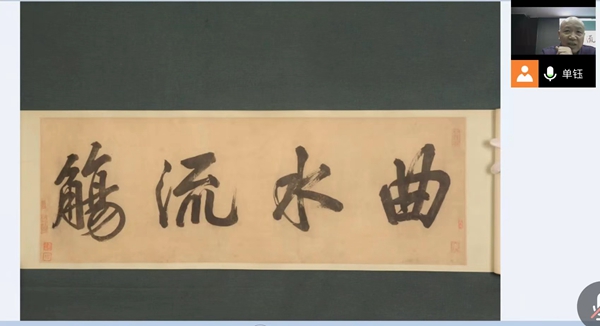 曲水流觴
单钰